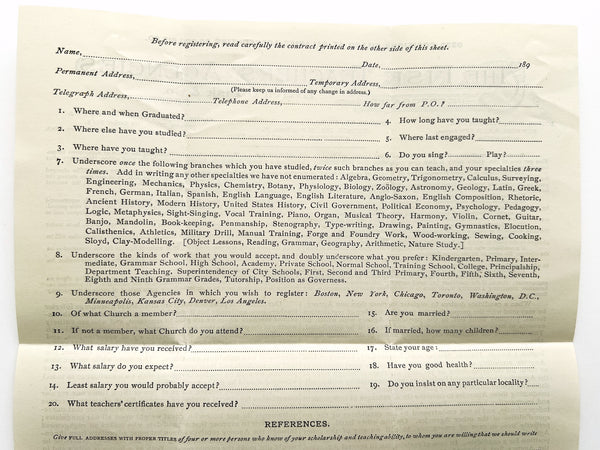 Before registering, read carefully the contract printed on the other side of this sheet.
Name, Date, 189
Permanent Address, Temporary Address,
(Please keep us informed of any change in address.)
Telegraph Address, Telephone Address, How far from P.O.?
1. Where and when Graduated? 4. How long have you taught?
2. Where else have you studied? 5. Where last engaged?
3. Where have you taught? 6. Do you sing? Play?
7. Underscore once the following branches which you have studied, twice such branches as you can teach, and your specialties three
times. Add in writing any other specialties we have not enumerated: Algebra, Geometry, Trigonometry, Calculus, Surveying,
Engineering, Mechanics, Physics, Chemistry, Botany, Physiology, Biology, Zoölogy, Astronomy, Geology, Latin, Greek,
French, German, Italian, Spanish, English Language, English Literature, Anglo-Saxon, English Composition, Rhetoric,
Ancient History, Modern History, United States History, Civil Government, Political Economy, Psychology, Pedagogy,
Logic, Metaphysics, Sight-Singing, Vocal Training, Piano, Organ, Musical Theory, Harmony, Violin, Cornet, Guitar,
Banjo, Mandolin, Book-keeping, Penmanship, Stenography, Type-writing, Drawing, Painting, Gymnastics, Elocution,
Calisthenics, Athletics, Military Drill, Manual Training, Forge and Foundry Work, Wood-working, Sewing, Cooking,
Sloyd, Clay-Modelling. [Object Lessons, Reading, Grammar, Geography, Arithmetic, Nature Study.]
8. Underscore the kinds of work that you would accept, and doubly underscore what you prefer: Kindergarten, Primary, Inter-
mediate, Grammar School, High School, Academy, Private School, Normal School, Training School, College, Principalship,
Department Teaching, Superintendency of City Schools, First, Second and Third Primary, Fourth, Fifth, Sixth, Seventh,
Eighth and Ninth Grammar Grades, Tutorship, Position as Governess.
9. Underscore those Agencies in which you wish to register: Boston, New York, Chicago, Toronto, Washington, D.C.,
Minneapolis, Kansas City, Denver, Los Angeles.
10. Of what Church a member? 15. Are you married?
11. If not a member, what Church do you attend? 16. If married, how many children?
12. What salary have you received? 17. State your age:
13. What salary do you expect? 18. Have you good health?
14. Least salary you would probably accept? 19. Do you insist on any particular locality?
20. What teachers' certificates have you received?
REFERENCES.
Give FULL ADDRESSES WITH PROPER TITLES of four or more persons who know of your scholarship and teaching ability, to whom you are willing that we should write